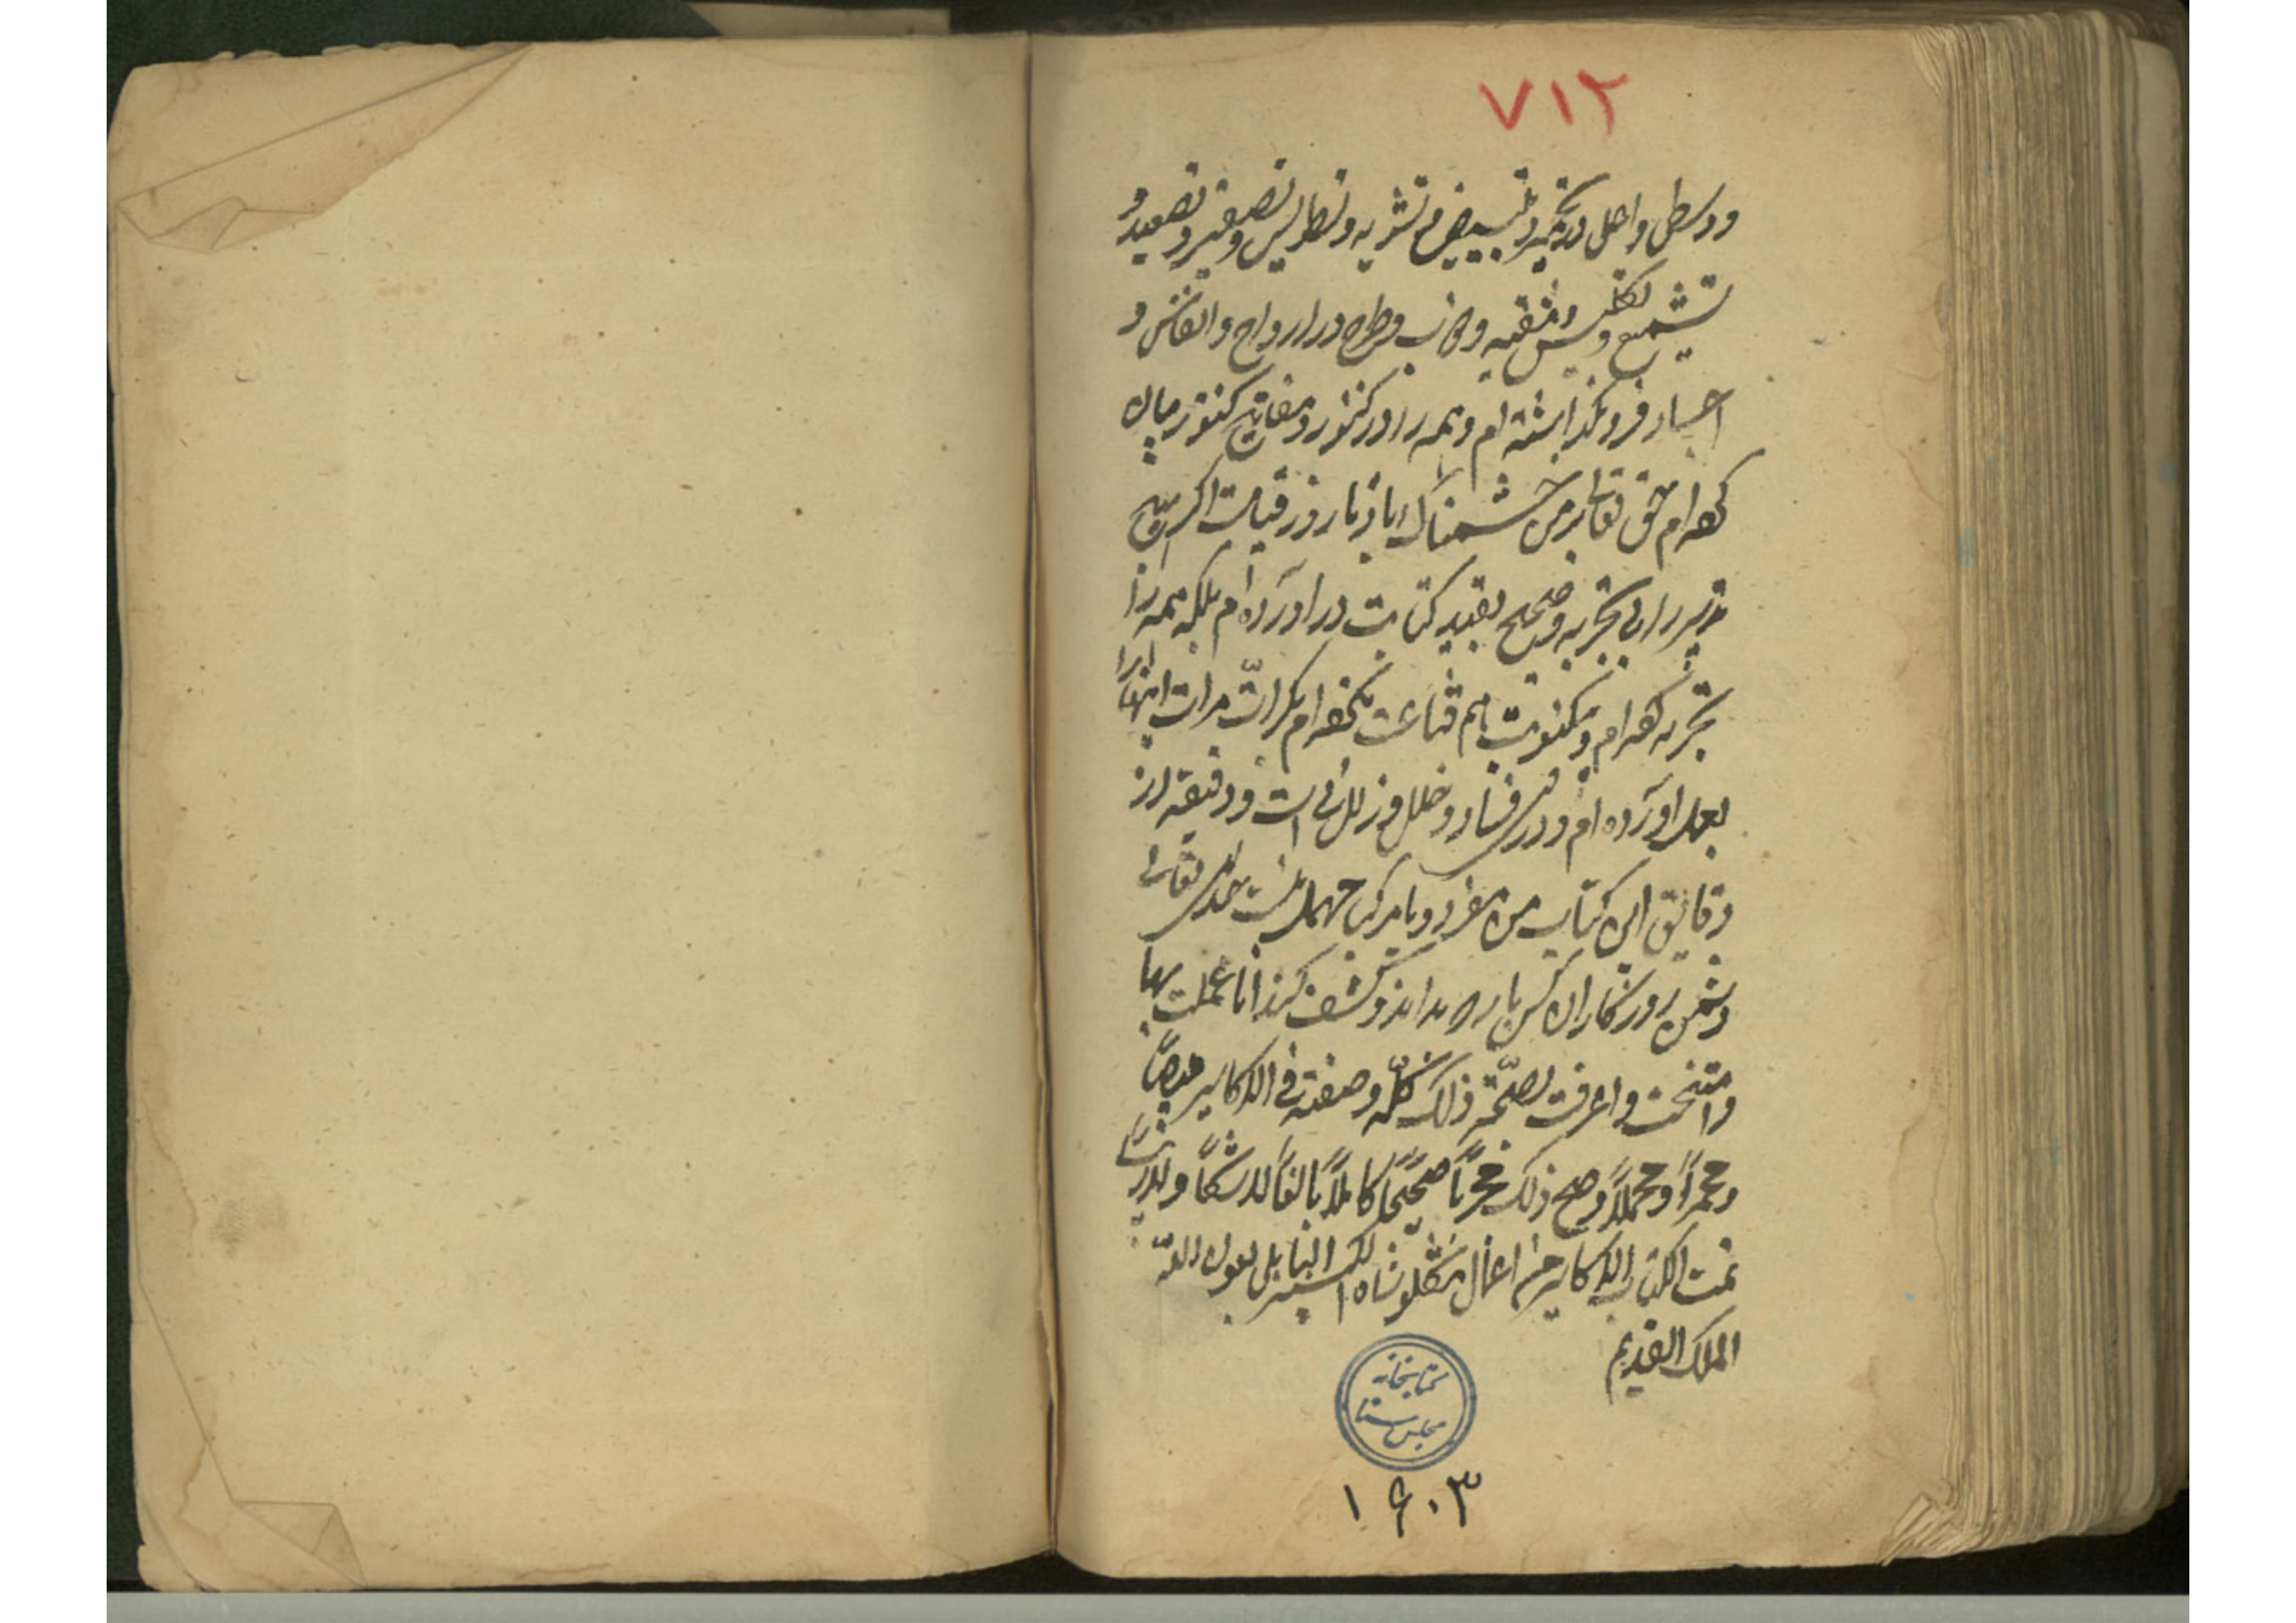 ۷۱۲
و وسطی و اهل در تحمیر و تبییض و تشویه و تطریس و تصغیر و تصعید و
تشمیع و تکلیس و تنقیه و طرح در ارواح و انفاس و
اجساد فرو نگذاشته ام و همه را در کنوز و مفاتیح کنوز بیان
کرده ام حق تعالی بر من خشمناک باد تا روز قیامت اگر هیچ
را بی تجربه و صحیح بقید کتابت در آورده ام بلکه همه را
تجربه کرده ام و بهم قناعت نکرده ام بکرات مرات اینها را
بعمل آورده ام و در فساد و خلل و زلل است و دقیقه از
دقایق این کتاب من مفرد و یا مرکب مهمل نیست تعالی
دشمن روزگار آن کس باد بداند و کشف کند انا عملت بها
و امتحنت و اعرفت بصحة ذلک کله و صفته فی الاکاسیر مبیضا
و محمرا و محملا و صح ذلک مجربا صحیحا کاملا بالغا لا شکا و لا ریبا
تمت الکتاب الاکاسیر من اعمال تنکلوشاه البابلی بعون الله
الملک القدیم
کتابخانه
مجلس سنا
۱۶۰۳